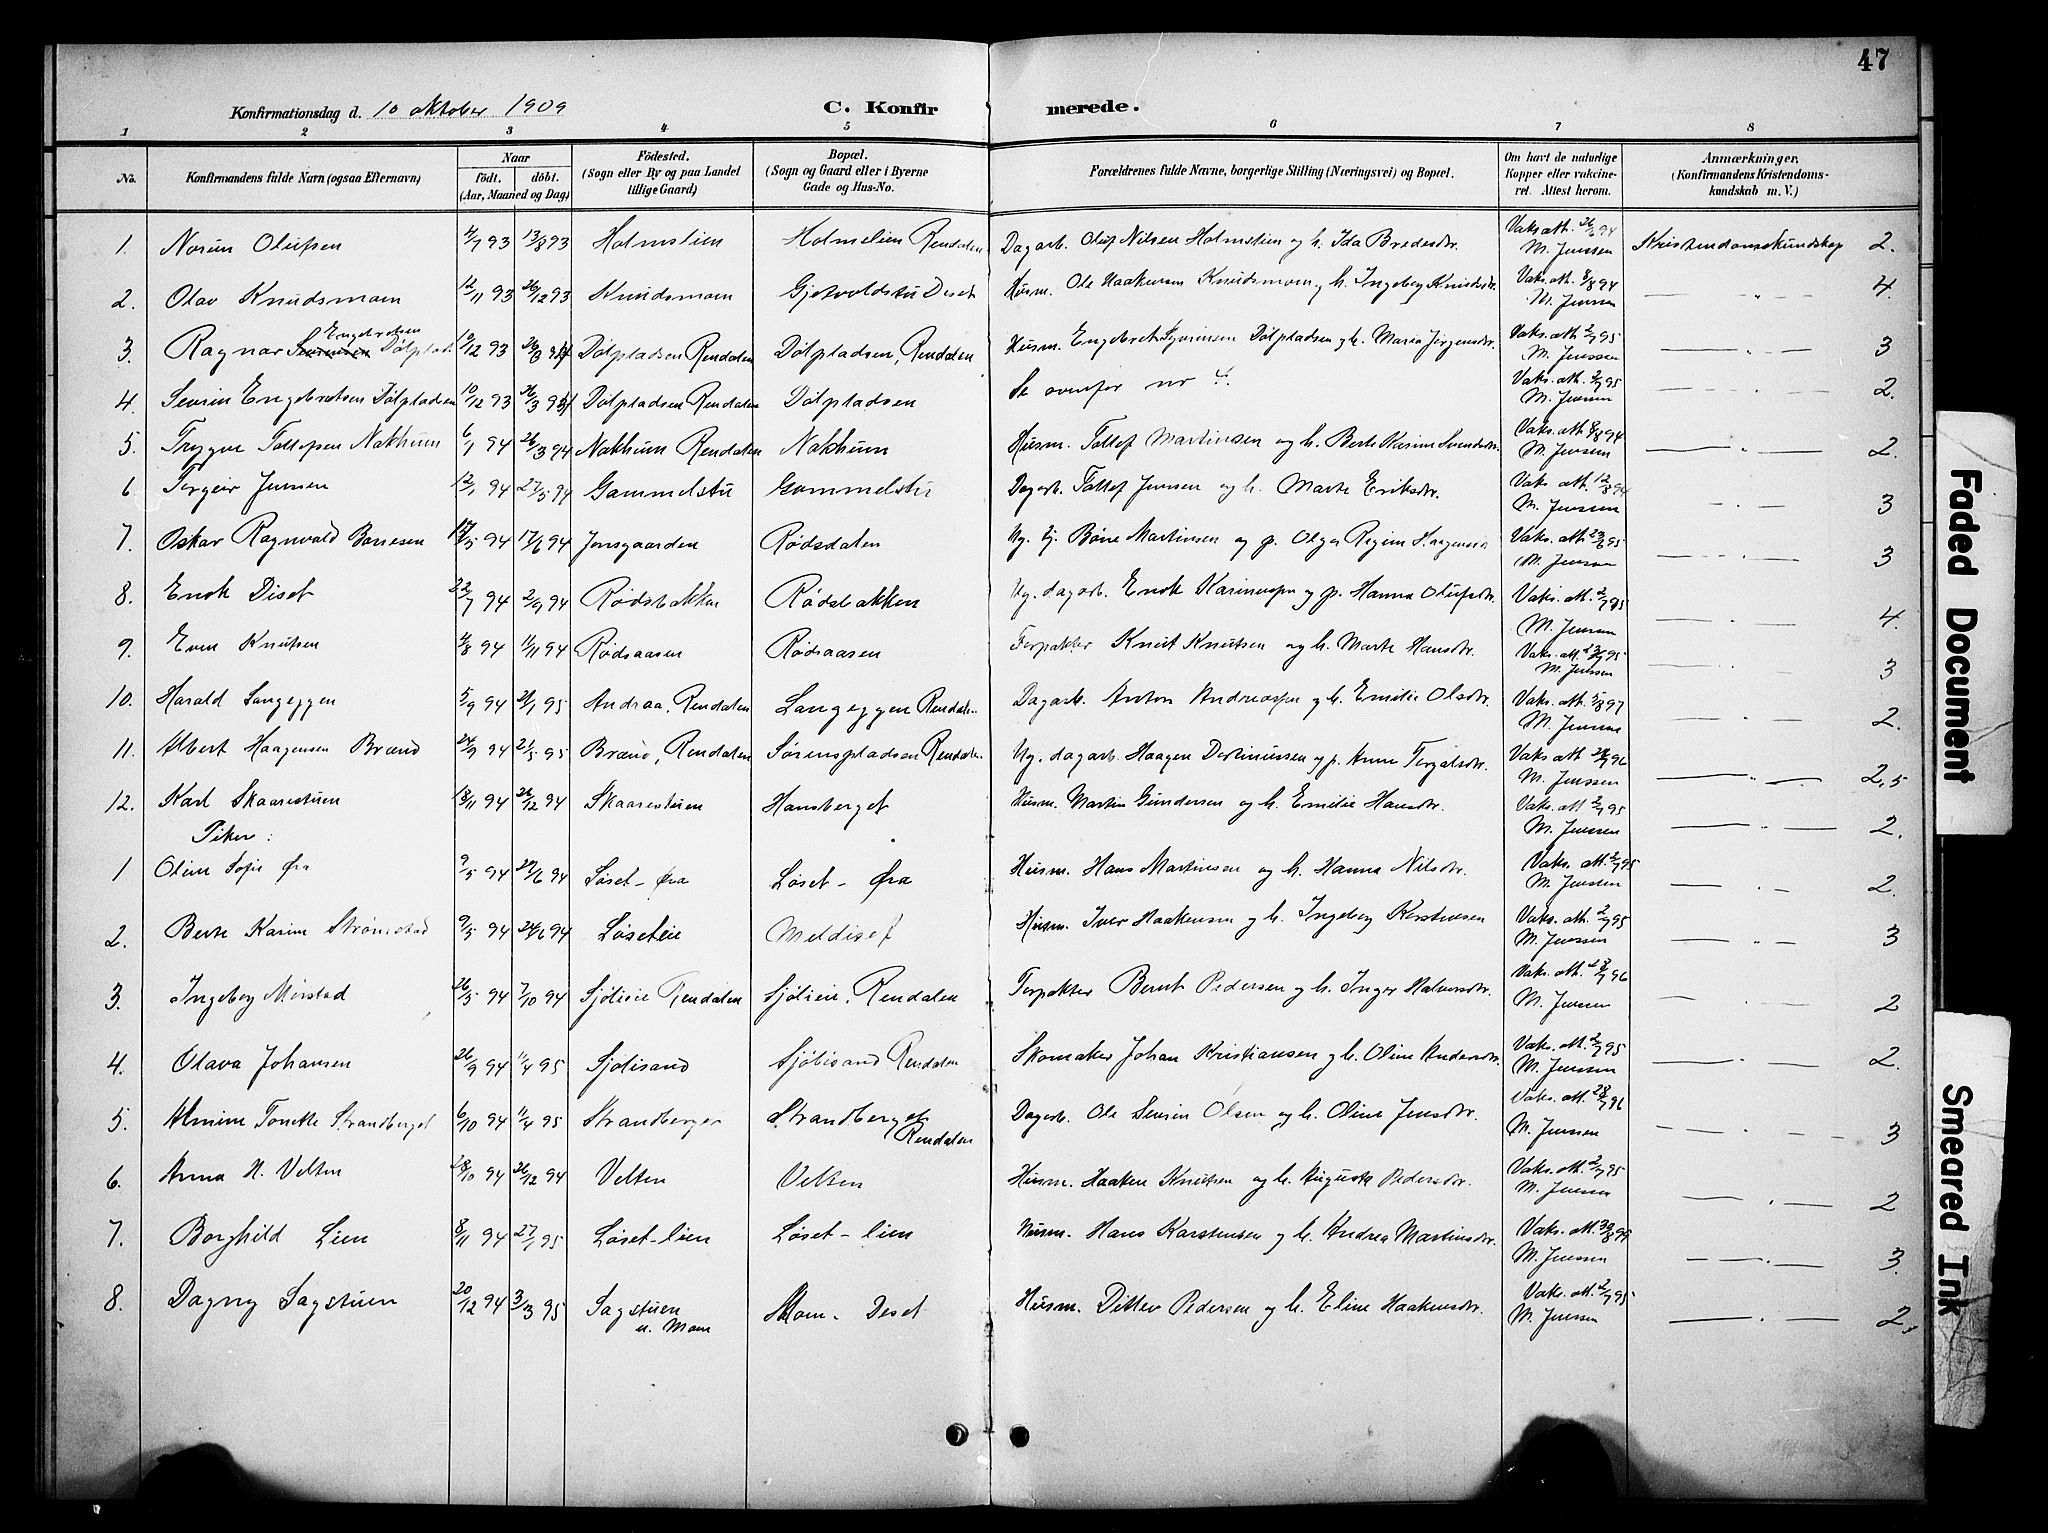 47
Konfirmationsdag d. 10 oktober 1909 C. Konfirmerede.
1 2 3 4 5 6 7 8
No. Konfirmandens fulde Navn (ogsaa Efternavn) Naar födt. döbt. (Aar, Maaned og Dag) Födested. (Sogn eller By og paa Landet tillige Gaard) Bopæl. (Sogn og Gaard eller i Byerne Gade og Hus-No. Forældrenes fulde Navne, borgerlige Stilling (Næringsvei) og Bopæl. Om havt de naturlige Kopper eller vakcineret. Attest herom. Anmærkninger, (Konfirmandens Kristendomskundskab m. V.)
1. Norun Olufsen 4/7 93 13/8 93 Holmslien Holmslien Rendalen Dagarb. Oluf Nilsen Holmslien og h. Ida Bredesdr. Vaks att. 26/6 94 M. Jenssen Kristendomskundskap 2.
2. Olav Knudsmoen 12/11 93 26/12 93 Knudsmoen Gjetvoldstu Diset Husm. Ole Haakensen Knudsmoen og h. Ingeborg Knudsdr. Vaks. att. 8/8 94 M. Jenssen — " — 4.
3. Ragnar Engebretsen Dölplads. 10/12 93 26/3 94 Dölpladsen Rendalen Dölpladsen, Rendalen Husm. Engebret Syversen Dölpladsen og h. Maria Jörgensdr. Vaks. att. 2/7 95 M. Jenssen — " — 3
4. Severin Engebretsen Dölpladsen 10/12 93 26/3 94 Dölpladsen Rendalen Dölpladsen Se ovenfor nr 4. Vaks. att. 2/7 95 M. Jenssen — " — 2.
5. Trygve Tollefsen Nakhum 6/1 94 26/3 94 Nakhum Rendalen Nakhum Husm. Tollef Martinsen og h. Berte Karine Svendsdr. Vaks. att. 8/8 94 M. Jenssen — " — 2.
6 Torgeir Jensen 12/1 94 27/5 94 Gammelstu Gammelstu Dagarb. Tollef Jensen og h. Marte Eriksdr. Vaks. att. 12/8 94 M. Jenssen — " — 3
7. Oskar Ragnvald Børresen 5 94 17/6 94 Jonsgaarden Rødsdalen Ug. Børre Martinsen og p. Olga Regine Vaks. att. 23/6 95 M. Jenssen — " — 3
8. Enok Diset 22/7 94 2/9 94 Rødsbakken Rødsbakken Ug. dagarb. Enok Karinusen og p. Hanna Olufsdr. Vaks. att. 2/7 95 M. Jenssen — " — 4.
9. Even Knutsen 4/8 94 1/11 94 Rødsaasen Rødsaasen Forpakter Knut Knutsen og h. Marte Hansdr. Vaks. att. 95 M. Jenssen — " — 3
10. Harald Langeggen 5/9 94 21/1 95 Andraa, Rendalen Langeggen Rendalen. Dagarb. Anton Andreassen og h. Emilie Olsdr. Vaks. att. 5/8 97 M. Jenssen — " — 2.
11. Albert Haagensen Brænd 24/9 94 21/5 95 Brænd, Rendalen Sørenspladsen Rendalen. Ug. dagarb. Haagen Dortinussen og p. Anne Torgalsdr. Vaks att. 28/7 96 M. Jenssen — " — 2,5
12. Karl Skaarestuen 18/11 94 26/12 94 Skaarestuen Hansberget Husm. Martin Gundersen og h. Emilie Hansdr. Vaks. att. 2/7 95 M. Jenssen — " — 2.
Piker:
1 Oline Sofie Øra 9/5 94 24/6 94 Løset-Øra Løset-Øra Husm. Hans Martinsen og h. Hanna Nilsdr. Vaks. att. 2/7 95 M. Jenssen — " — 2.
2. Berte Karine Strømstad 9/5 94 24/6 94 Løseteie Meldiset Husm. Iver Haakensen og h. Ingeborg Karstensen Vaks. att. 2/7 95 M. Jenssen — " — 3
3. Ingeborg Mørstad 26/5 94 7/10 94 Sjölieie Rendalen Sjölieie, Rendalen Forpakter Bernt Pedersen og h. Inger Halvorsdr. Vaks. att. 28/7 96 M. Jenssen — " — 2
4. Olava Johansen 26/9 94 1/4 95 Sjölisand Sjölisand Rendalen Skomaker Johan Kristiansen og h. Oline Andersdr. Vaks. att. 2/7 95 M. Jenssen — " — 2.
5. Almine Tonette Strandberget 6/10 94 1/4 95 Strandberget Strandberget Rendalen Dagarb. Ole Severin Olsen og h. Oline Jensdr. Vaks. att. 28/7 96 M. Jenssen — " — 3
6. Anna H. Velten 28/10 94 26/12 94 Velten Velten Husm. Haaken Knutsen og h. Auguste Pedersdr. Vaks. att. 2/7 95 M. Jenssen — " — 2
7. Borghild Lien 8/11 94 27/1 95 Løset-lien Løset-lien Husm. Hans Karstensen og h. Andrea Martinsdr. Vaks. att. 99 M. Jenssen — " — 3.
8. Dagny Sagstuen 20/12 94 3/3 95 Sagstuen u. Moen Moen. Diset Husm. Ditlev Pedersen og h. Eline Haakensdr. Vaks. att. 2/7 95 M. Jenssen — " — 2.
Faded Document
Smeared Ink